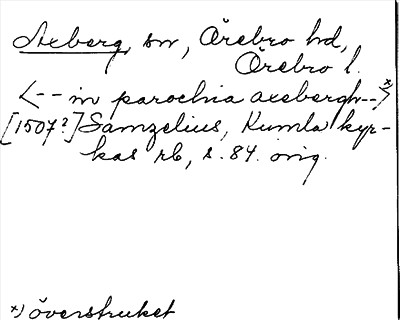 Axberg, sn, Örebro hd,
Örebro l.
<-- in parochia axebergh-->*)
[1507?] Samzelius, Kumla kyr-
kas rb, s. 84. orig.
*) överstruket